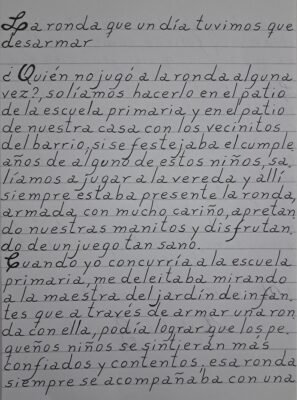 La ronda que un día tuvimos que
desarmar
¿Quién no jugó a la ronda alguna
vez?, solíamos hacerlo en el patio
de la escuela primaria y en el patio
de nuestra casa con los vecinitos
del barrio, si se festejaba el cumple
años de alguno de estos niños, sa
líamos a jugar a la vereda y allí
siempre estaba presente la ronda,
armada con mucho cariño, apretan
do nuestras manitos y disfrutan
do de un juego tan sano.
Cuando yo concurría a la escuela
primaria, me deleitaba mirando
a la maestra del jardín de infan
tes que a través de armar una ron
da con ella, podía lograr que los pe
queños niños se sintieran más
confiados y contentos; esa ronda
siempre se acompañaba con una